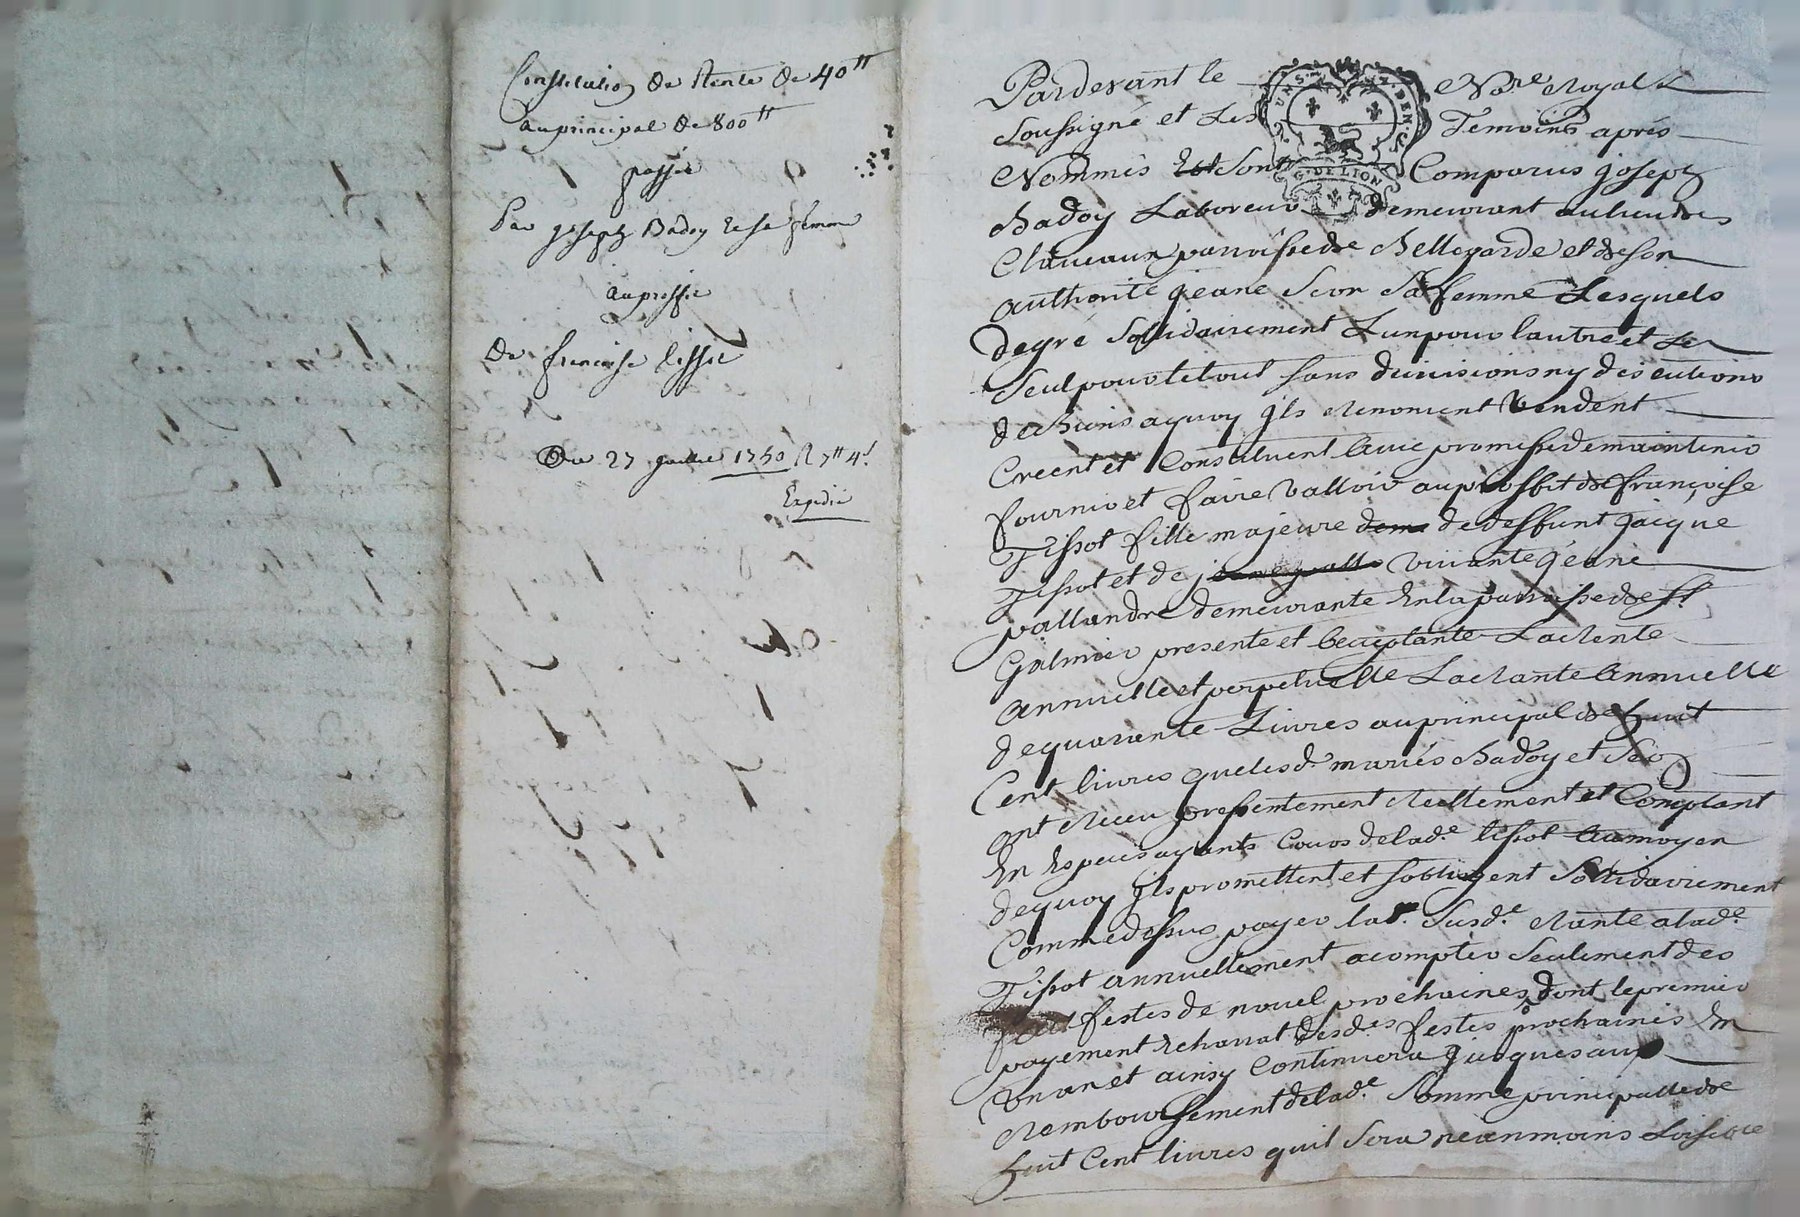 Constitution de Rente de 40tt
au principal de 800tt
passée
Par joseph Badoy et sa femme
au proffit
de francoise tissot
Du 27 juillet 1750 R 7tt 4s
Expedié
Pardevant le Nore Royal
soussigné et Les Temoins aprés
Nommés sont Comparus joseph
Badoy Laboreur demeurant au lieu des
Claveaux parroisse de Bellegarde et de son
authorité jeane seon sa femme Lesquels
de gré solidairement L'un pour l'autre et Le
seul pour le tout sans divisions ny discutions
de Biens a quoy jls Renoncent Vendent
Créent et Constituent avec promesse de maintenir
fournir et faire valloir au proffit de françoise
Tissot fille majeure de deffunt jacque
Tissot et de vivante jeane
pallandre demeurante En la parroisse de st
Galmier presente et acceptante La Rente
annuelle et perpetuelle La Rante annuelle
de quarante Livres au principal de huit
Cent livres que lesd. mariés Badoy et Seo
ont Receu presentement Reellement et Comptant
En Espeices ayants Cours de lad.e tissot au moyen
de quoy jls promettent et sobligent Sollidairement
Comme dessus payer la susd.e Rante a lad.e
Tissot annuellement a compter seulement des
festes de nouel prochaines, dont le premier
payement Echerrat desd.es festes prochaines En
Vn an et ainsy Continuera jusques au
Remboursement de lad.e somme principalle de
huit Cent livres qu'il sera neanmoins Loisible
UN S. IX DEN.
G. DE LION